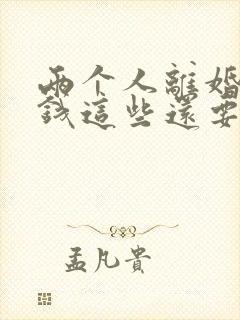 兩个人離婚
錢這些還要
孟凡貴